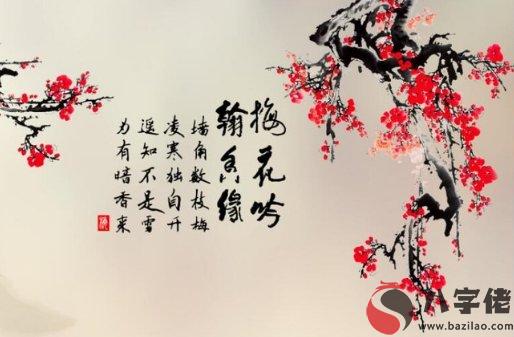 梅花吟
翰 缘
墙角数枝梅
凌寒独自开
遥知不是雪
为有暗香来
八字佬
www.bazilao.com